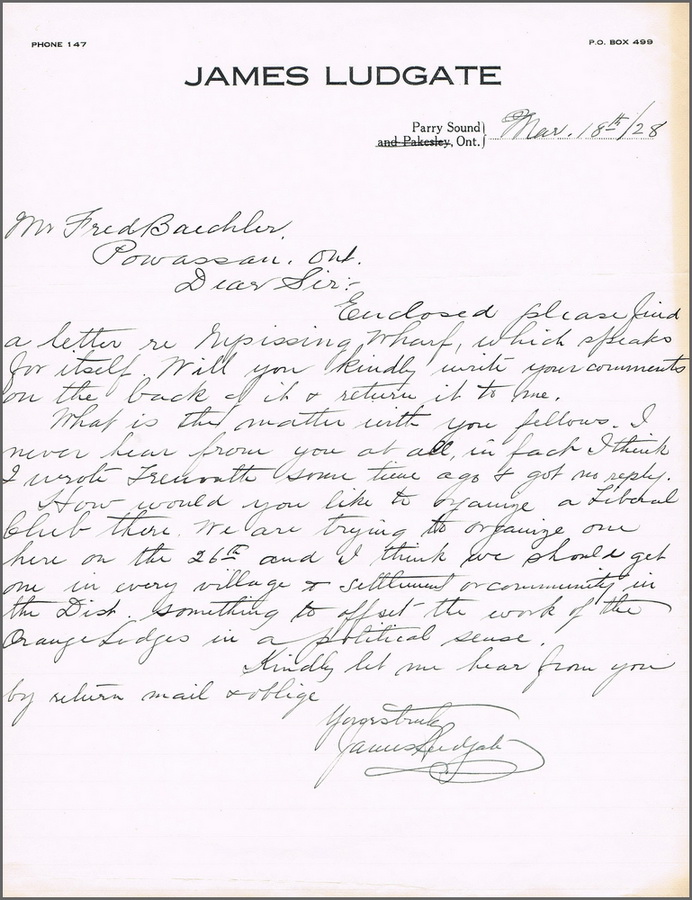 PHONE 147
P.O. BOX 499
JAMES LUDGATE
Parry Sound
and Pakesley, Ont.
Mar. 18th/28
Mr Fred Baechler,
Powassan, Ont.
Dear Sir:-
Enclosed please find
a letter re Nipissing Wharf, which speaks
for itself. Will you kindly write your comments
on the back of it & return it to me.
What is the matter with you fellows. I
never hear from you at all, in fact I think
I wrote some time ago & got no reply.
How would you like to organize a Liberal
Club there. We are trying to organize one
here on the 26th and I think we should get
one in every village & settlement or community in
the Dist. something to offset the work of the
Orange Lodges in a political sense.
Kindly let me hear from you
by return mail & oblige
Yours truly
James Ludgate